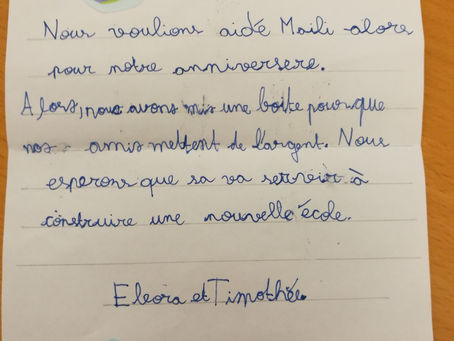 Nous voulions aidé Maili alors
pour notre anniversere.
Alors, nous avons mis une boîte pour que
nos amis mettent de l'argent. Nous
esperons que sa va servoir à
construire une nouvelle école.
Eleora et Timothée